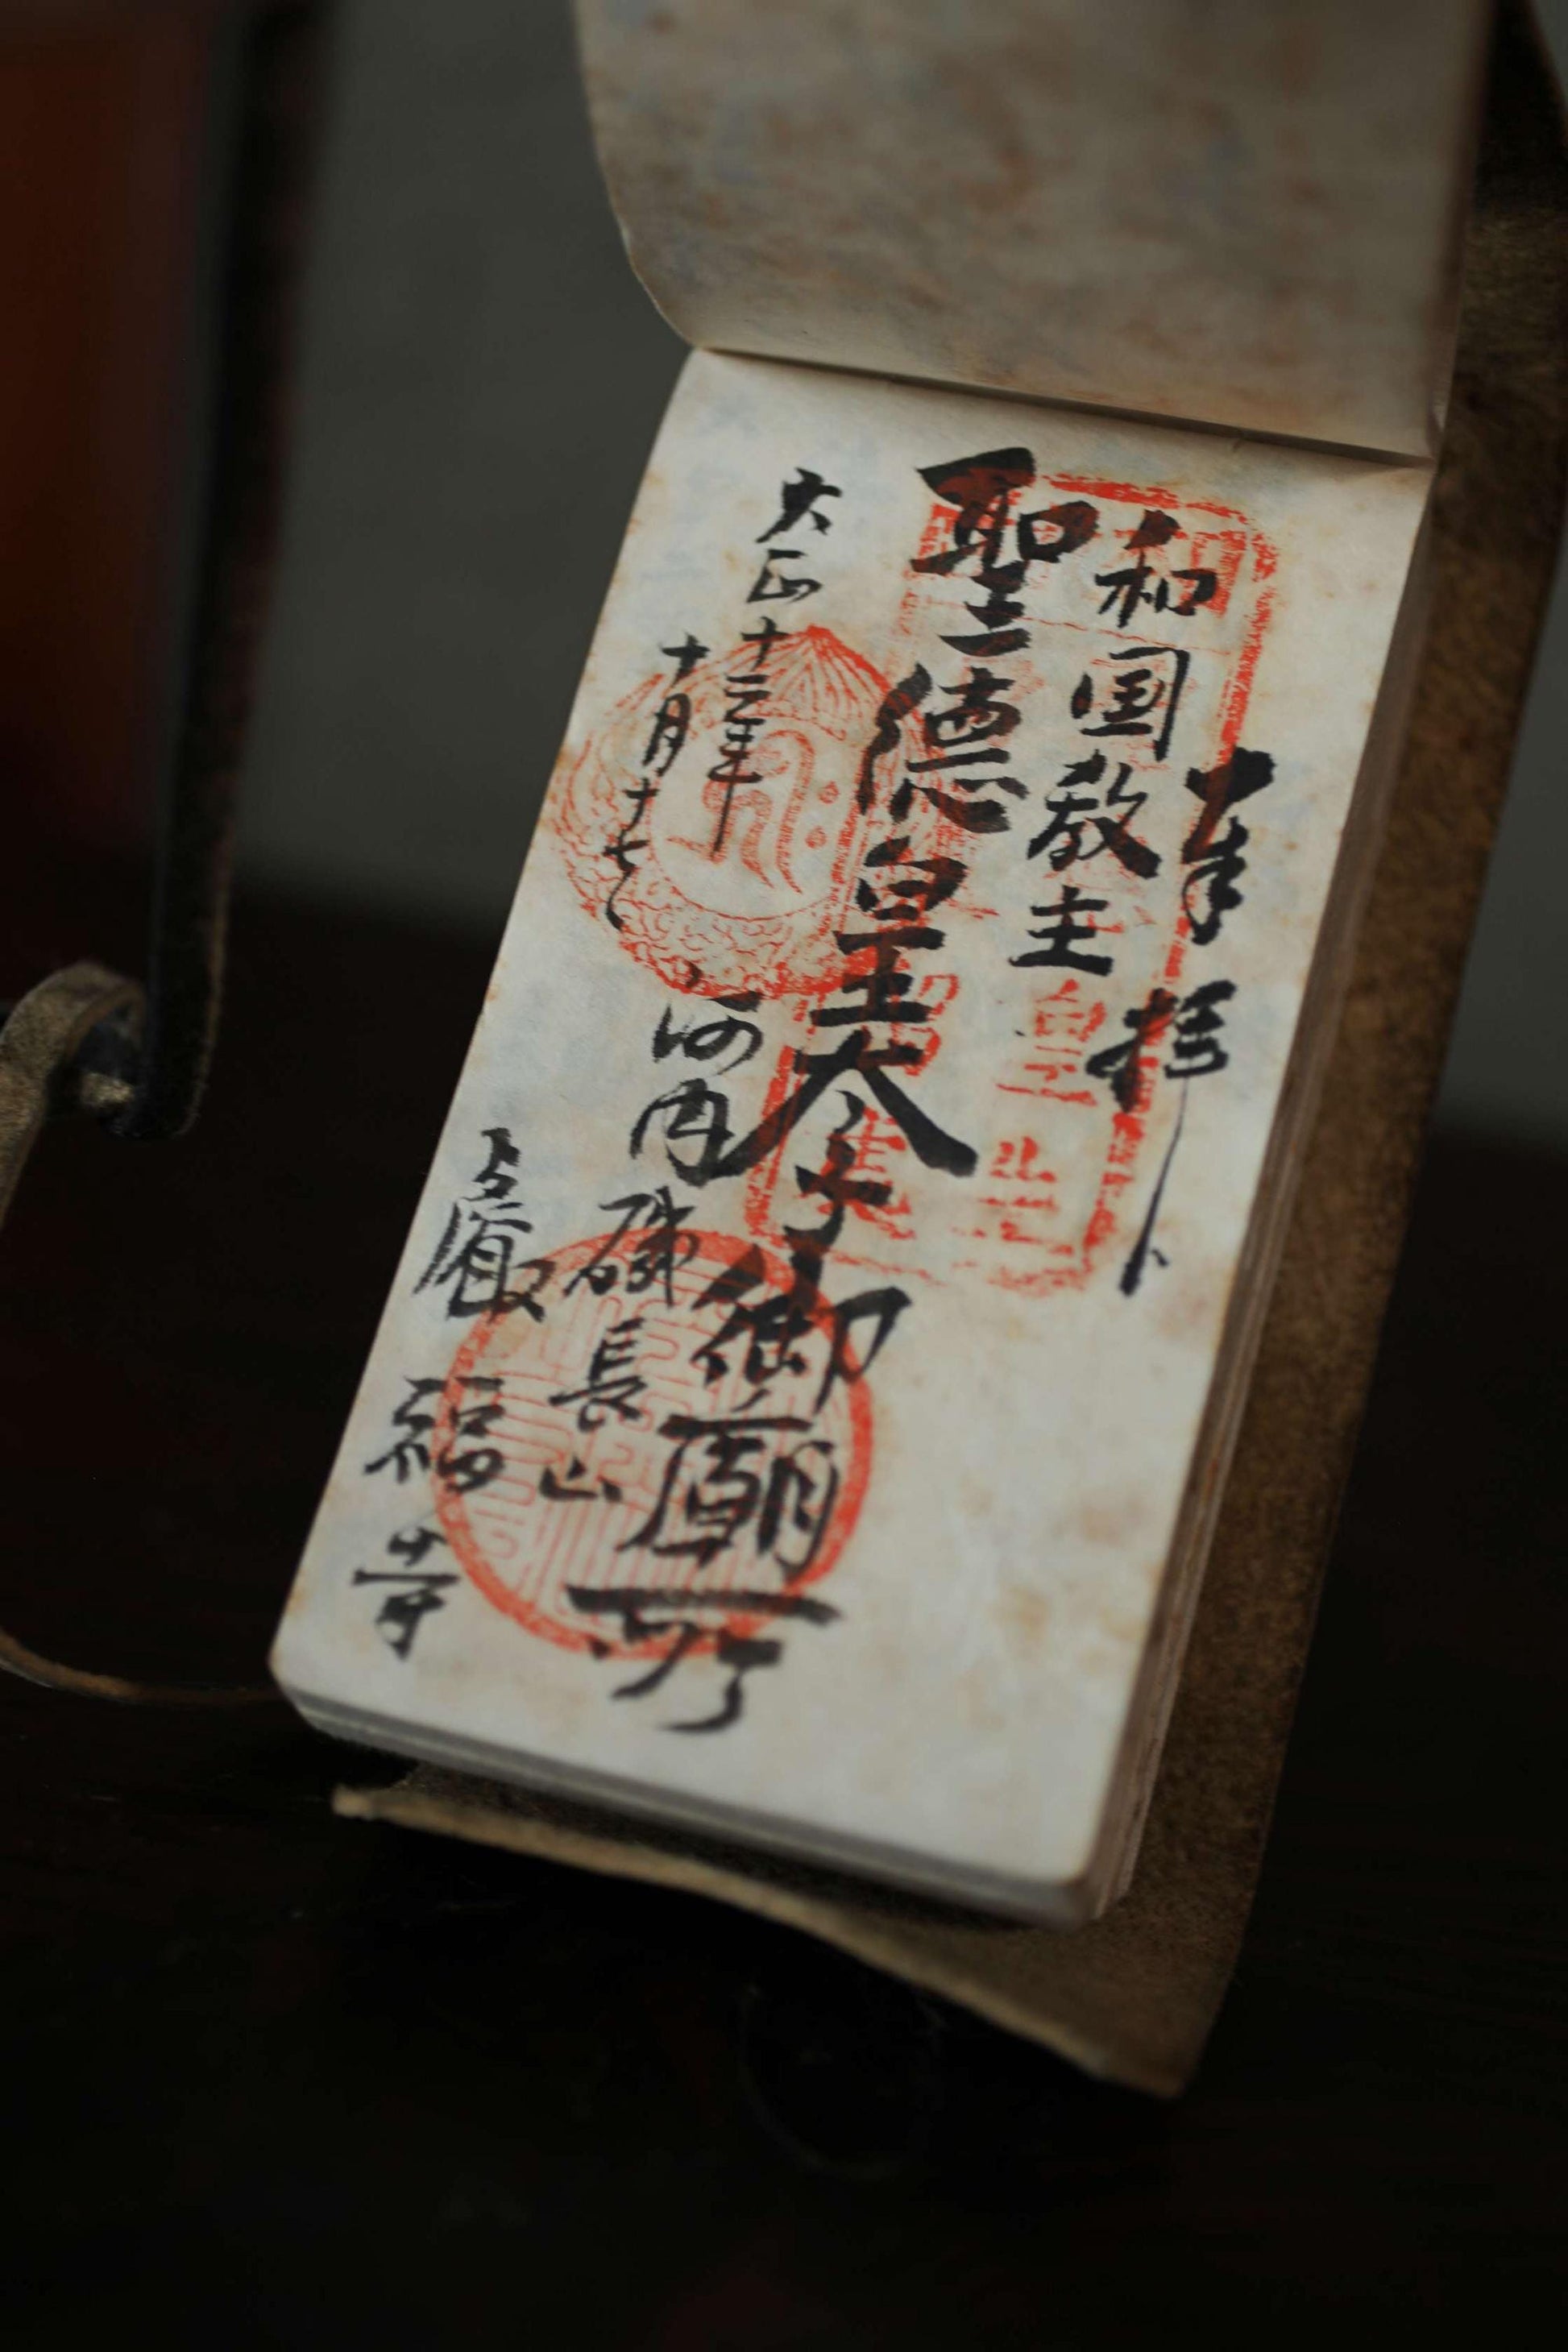 奉拝
和国教主
聖徳皇太子御廟所
大正十二年
十月十七
河内磯長山
叡福寺